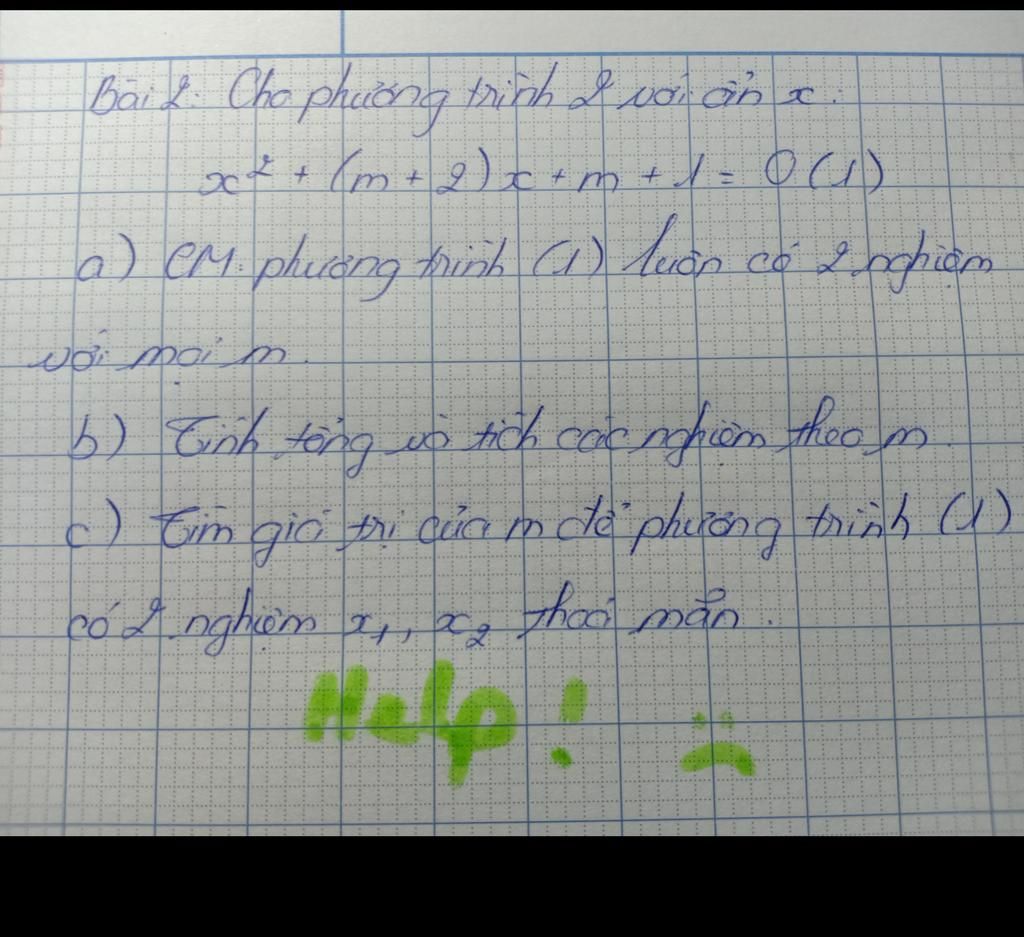 Bài 2: Cho phương trình 2 với ẩn x:
x² + (m + 2)x + m + 1 = 0 (1)
a) CM: phương trình (1) luôn có 2 nghiệm
với mọi m.
b) Tính tổng và tích các nghiệm theo m.
c) Tìm giá trị của m để phương trình (1)
có 2 nghiệm x₁, x₂ thoả mãn.
Help! :(